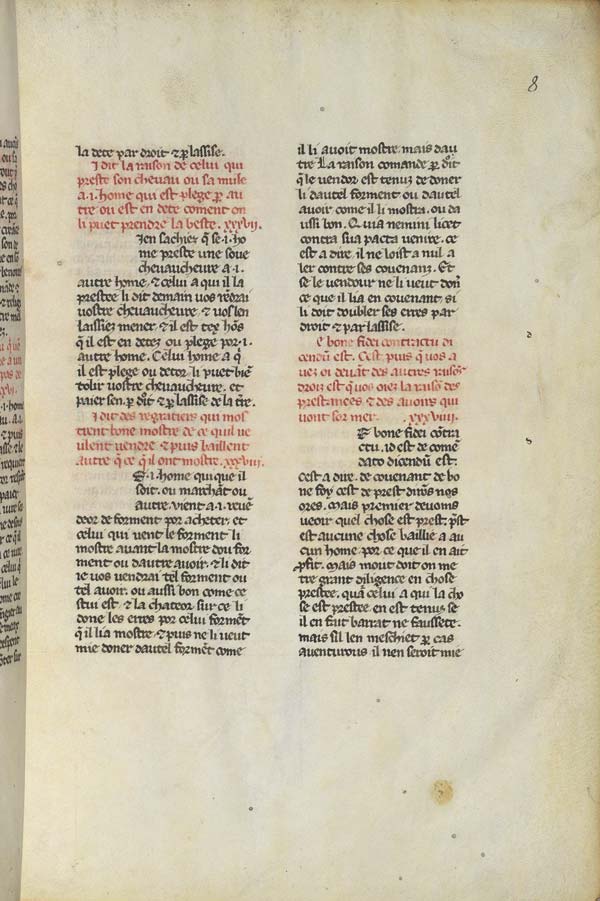 8
la dete par droit & ꝑ lassise.
I dit la raison de celui qui
preste son chevau ou sa mule
a .i. home qui est plege ꝑ au
tre ou est en dete coment on
li puet prendre la beste. xxxvii.
Ien sachiez q̄ se .i. ho
me preste une soue
chevaucheure a .i.
autre home. & celui a qui il la
prestee li dit demain vos rēdrai
vostre chevaucheure. & vos len
laissiez mener. & il est tex hōs
q̄ il est en detez ou plege por .i.
autre home. Celui home a q̄
il est plege ou detor. li puet biē
tolir vostre chevaucheure. et
paier sen. ꝑ dɾ̄t & ꝑ lassise de la tr̄e.
I dit des regratiers qui mos
trent bone mostre de ce quil ve
ulent vendre & puis baillent
autre q̄ ce q̄ il ont mostre. xxxviii.
S .i. home qui que il
soit. ou marchāt ou
autre. vient a .i. revē
deor de forment por acheter. et
celui qui vent le forment li
mostre avant la mostre dou for
ment ou dautre avoir. & li dit
ie vos vendrai tel forment ou
tel avoir. ou aussi bon come ce
stui est. & lachateor sur ce li
done les erres por celui formēt
q̄ il li a mostre. & puis ne li veut
mie doner dautel formēt come
il li avoit mostre. mais dau
tre. La raison comande ꝑ droit
q̄ le vendor est tenuz de doner
li dautel forment ou dautel
avoir come il li mostra. ou da
ussi bon. Quia nemini licet
contra sua pacta venire. ce
est a dire. il ne loist a nul a
ler contre ses covenanz. Et
se le vendour ne li veut don̄
ce que il la en covenant. si
li doit doubler ses erres par
droit & par lassise.
E bone fidei contractu di
cendū est. Cest puis q̄ vos a
vez oi devant des autres raisōs
droiz est q̄ vos oiez la raisō des
prestances & des avoirs qui
vont sor mer. xxxviiii.
E bone fidei cōtra
ctu. id est de come
dato dicendū est.
cest a dire. de covenant de bo
ne foy cest de prest dirōs nos
ores. Mais premier devoms
veoir quel chose est prest. p̄st
est aucune chose baillie a au
cun home. por ce que il en ait
ꝓfit. Mais mout doit on me
tre grant diligence en chose
prestee. qua celui a qui la cho
se est prestee. en est tenus. se
il en fait barrat ne faussete.
mais sil len meschiet ꝑ cas
aventurous. il nen seroit mie